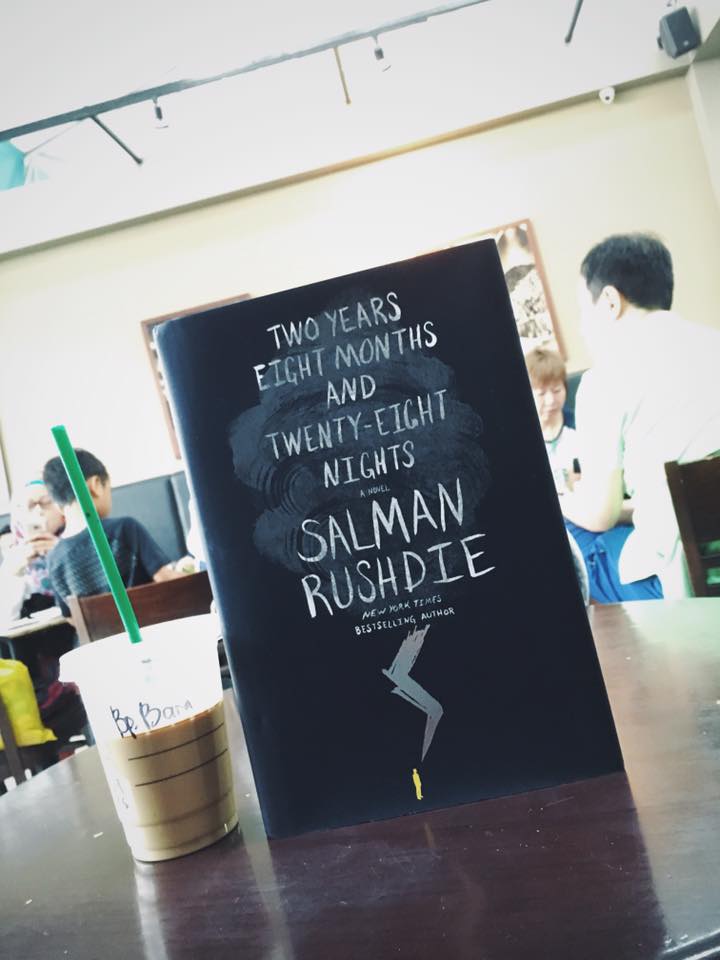 TWO YEARS
EIGHT MONTHS
AND
TWENTY-EIGHT
NIGHTS
A NOVEL
SALMAN
RUSHDIE
NEW YORK TIMES
BESTSELLING AUTHOR
Bp. Bara